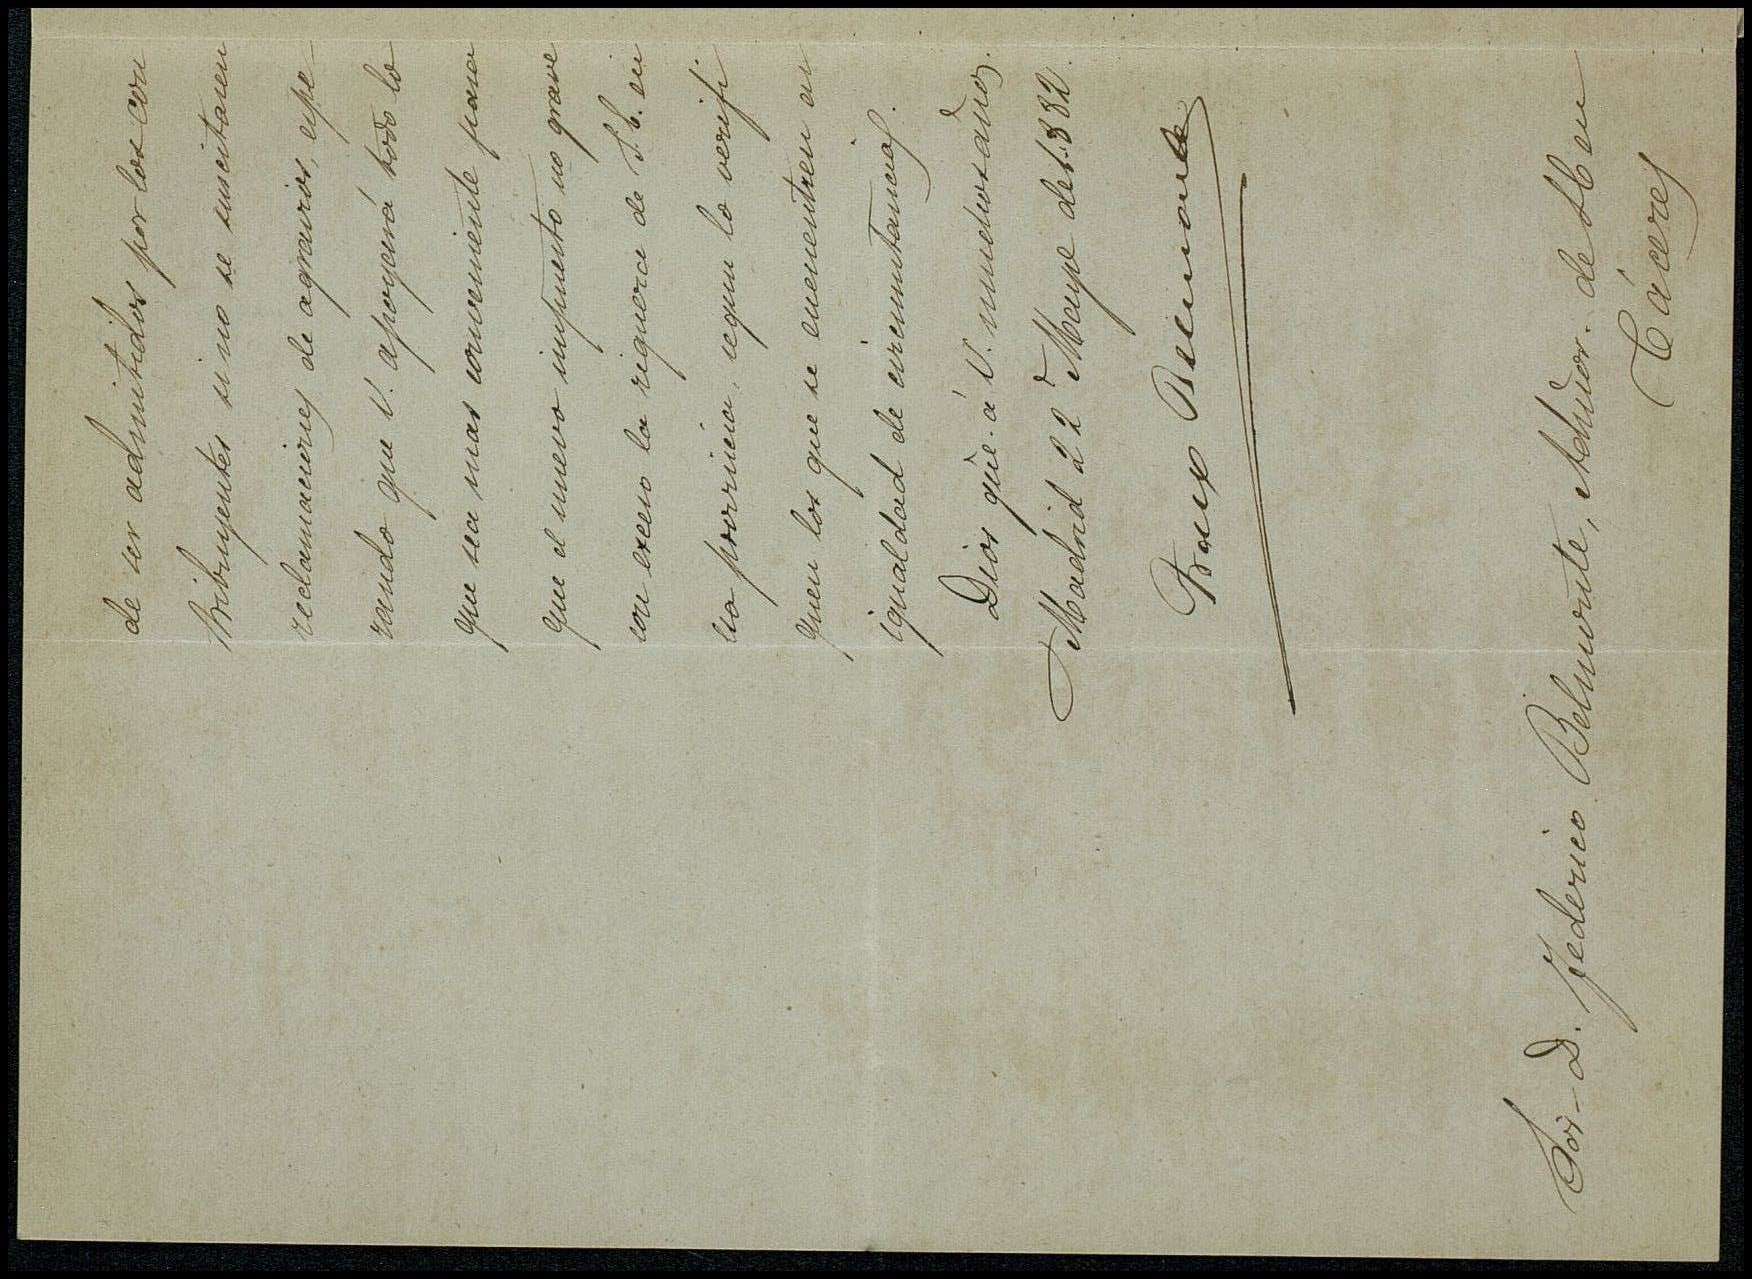 de ser admitidos por los con
tribuyentes si no se suscitaren
reclamaciones de agravios, espe
rando que V. apoyará todo lo
que sea mas conveniente para
que el nuevo impuesto no grave
con exceso la riqueza de S. E. en
esa provincia, segun lo verifi
quen los que se encuentren en
igualdad de circunstancias.
Dios gũe. á V. muchos años.
Madrid 22 Mayo de 1.882.
Franco Belmonte
Sor. D. Federico Belmonte, Admor. de H en
Cáceres